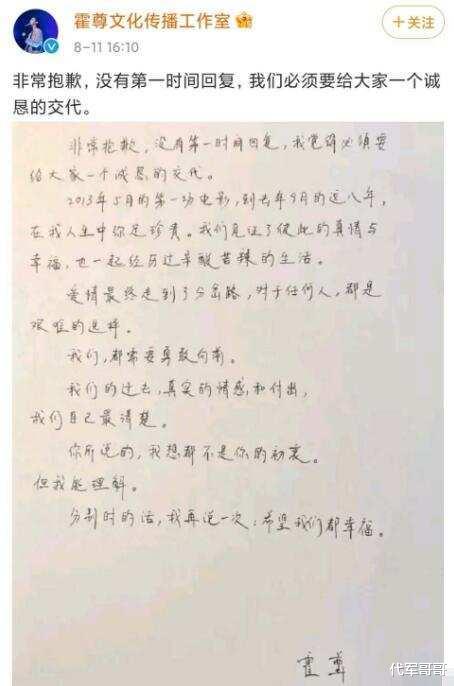 霍尊文化传播工作室
8-11 16:10
+关注
非常抱歉，没有第一时间回复，我们必须要给大家一个诚
恳的交代。
非常抱歉，没有第一时间回复，我觉得必须要
给大家一个诚恳的交代。
2013年5月的第一场电影，到去年9月的近八年，
在我人生中弥足珍贵。我们见证了彼此的真情与
幸福，也一起经历过辛酸苦辣的生活。
爱情最终走到了分岔路，对于任何人，都是
艰难的选择。
我们，都需要勇敢向前。
我们的过去，真实的情感和付出，
我们自己最清楚。
你所说的，我想都不是你的初衷。
但我能理解。
分别时的话，我再说一次：希望我们都幸福。
霍尊
代军哥哥